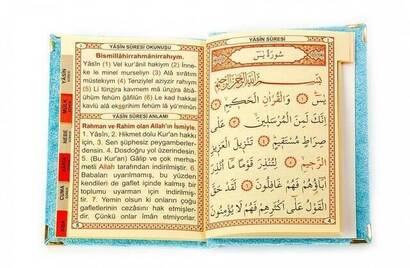 YÂSÎN SÛRESİ OKUNUŞU
Bismillâhirrahmânirrahıym.
(1) Yâsîn (1) Vel kur'ânil hakiym (2) İnne-
ke le minel murseliyn (3) Alâ sırâtım
müstekıym (4) Tenziylel aziyzir rahıym
(5) Li tünzira kavmem mâ ünzira âbâ-
ühüm fehüm ğâfilûn (6) Le kad hakkal
kavlü alâ ekserihim fehüm lâ yü'minûn
YÂSÎN SÛRESİ ANLAMI
Rahman ve Rahim olan Allah'ın İsmiyle.
1. Yâsîn, 2. Hikmet dolu Kur'an hakkı
için, 3. Sen şüphesiz peygamberler-
densin. 4. Dosdoğru yol üzerindesin.
5. (Bu Kur'an) Gâlip ve çok merha-
metli Allah tarafından indirilmiştir. 6.
Babaları uyarılmamış, bu yüzden
kendileri de gaflet içinde kalmış bir
toplumu uyarman için indirilmiş-
tir. 7. Yemin olsun ki onların çoğu
gafletlerinin cezasını hak etmişler-
dir. Çünkü onlar îmân etmiyorlar.
YÂSİN
MÜLK
NEBE
CUMA
YÂSÎN SÛRESİ
سُورَةُ يٰسٓ
بِسْمِ اللّٰهِ الرَّحْمٰنِ الرَّحِيمِ
يٰسٓ ﴿١﴾ وَالْقُرْاٰنِ الْحَكِيمِ ﴿٢﴾
اِنَّكَ لَمِنَ الْمُرْسَلِينَ ﴿٣﴾ عَلٰى
صِرَاطٍ مُسْتَقِيمٍ ﴿٤﴾ تَنْزِيلَ الْعَزِيزِ
الرَّحِيمِ ﴿٥﴾ لِتُنْذِرَ قَوْمًا مَٓا اُنْذِرَ
اٰبَٓاؤُهُمْ فَهُمْ غَافِلُونَ ﴿٦﴾ لَقَدْ حَقَّ
الْقَوْلُ عَلٰٓى اَكْثَرِهِمْ فَهُمْ لَا يُؤْمِنُونَ